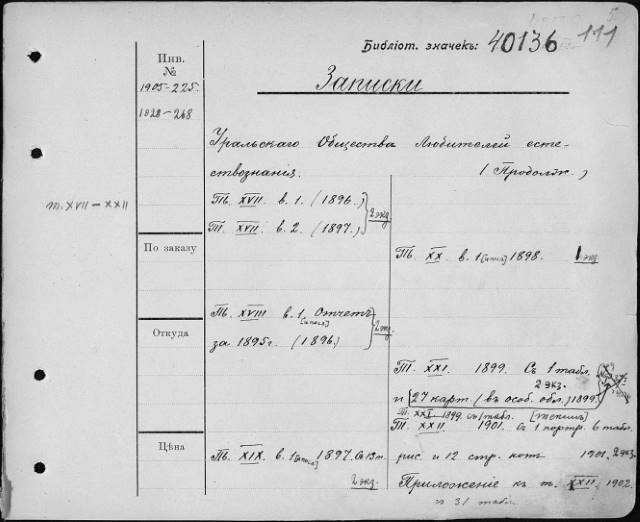 Библіот. значекъ: 40136 111
Инв.
№
1905-225.
1028-268
Записки
Уральскаго Общества Любителей есте-
ствознания. (Продолж.)
т. XVII – XXII
Тъ. XVII. в. 1. (1896.)
Т. XVII. в. 2. (1897.)
2 экз.
По заказу
Тъ. XX. в. 1 1898. 1 экз.
Тъ. XVIII в. 1 Отчетъ
за 1895 г. (1896.)
2 экз.
Откуда
Т. XXI. 1899. Съ 1 табл.
2 экз.
и 27 карт. (въ особ. обл.) 1899.
Т. XXI 1899. съ 1 табл.
Т. XXII. 1901. Съ 1 портр. 6 табл.
Цѣна
Тъ. XIX. в. 1 1897.
2 экз.
рис. и 12 стр. нотъ 1901. 2 экз.
Приложение къ т. XXII 1902.
и 31 табл.